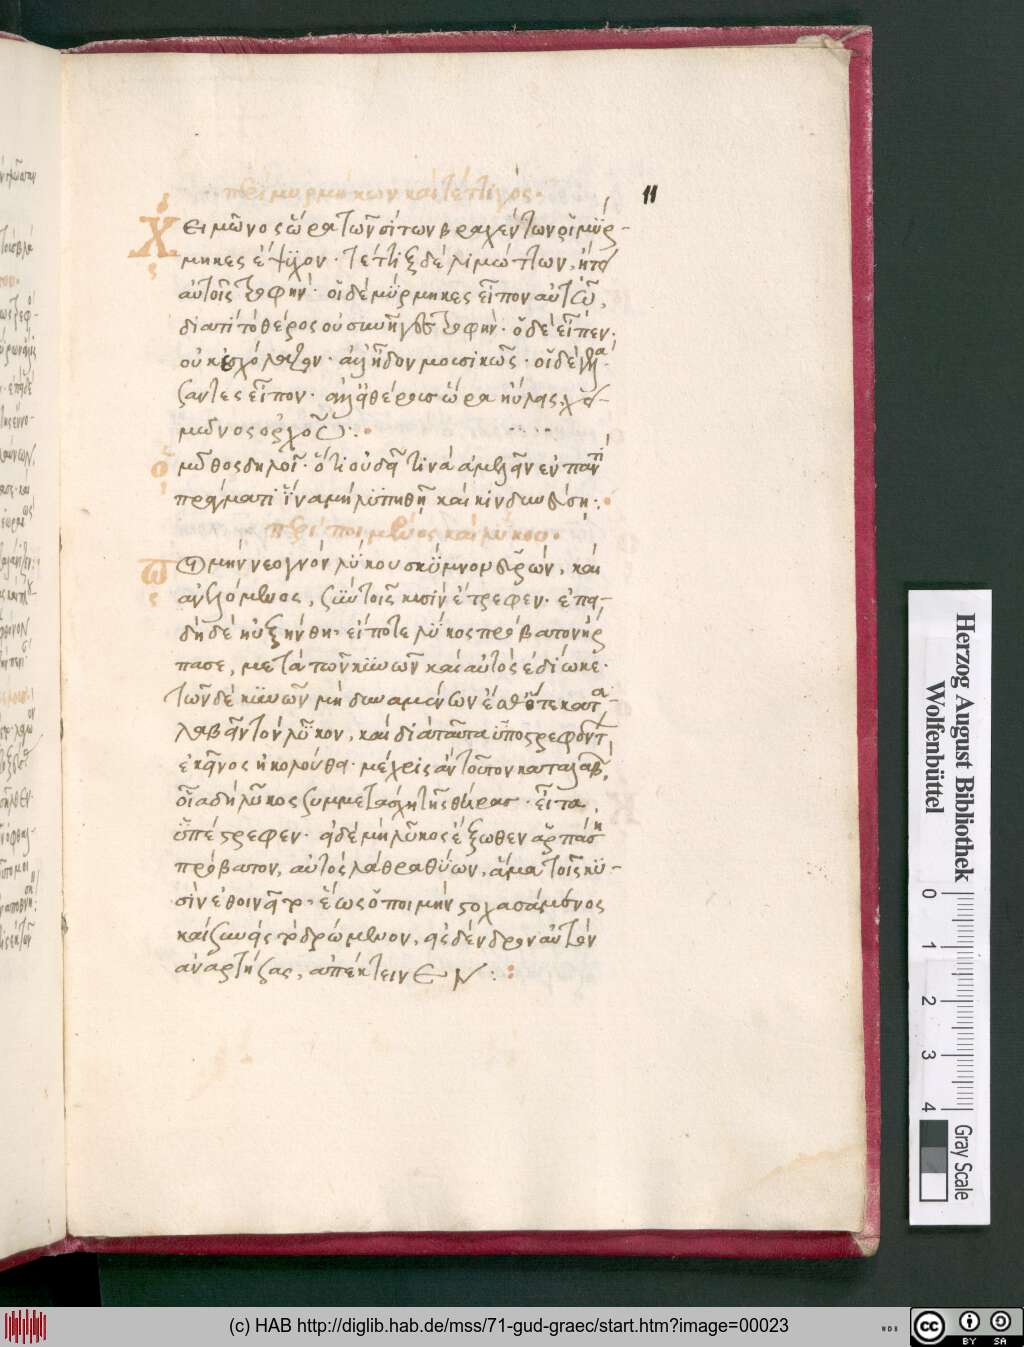 περὶ μυρμήκων καὶ τέττιγος.
11
Χειμῶνος ὥρα τῶν σίτων βραχέντων οἱ μύρ-
μηκες ἔψυχον. τέττιξ δὲ λιμώττων, ᾔτει
αὐτοῖς τροφήν. οἱ δὲ μύρμηκες εἶπον αὐτῷ,
διατί τὸ θέρος οὐ συνῆγες τροφήν. ὁ δὲ εἶπεν.
οὐκ ἐσχόλαζον. ἀλλ' ᾖδον μουσικῶς. οἱ δὲ γελά-
σαντες εἶπον. ἀλλ' εἰ θέρους ὥρα ηὔλεις, χει-
μῶνος ὀρχοῦ.
ὁ
μῦθος δηλοῖ. ὅτι οὐ δεῖ τινὰ ἀμελεῖν ἐν παντὶ
πράγματι ἵνα μὴ λυπηθῇ καὶ κινδυνεύσῃ.
περὶ ποιμένος καὶ λύκου.
Ποιμὴν νεογνὸν λύκου σκύμνον εὑρὼν, καὶ
ἀνελόμενος, σὺν τοῖς κυσὶν ἔτρεφεν. ἐπει-
δὴ δὲ ηὐξήνθη, εἴ ποτε λύκος πρόβατον ἥρ
πασε, μετὰ τῶν κυνῶν καὶ αὐτὸς ἐδίωκε.
τῶν δὲ κυνῶν μὴ δυναμένων ἔσθ' ὅτε κατα-
λαβεῖν τὸν λύκον, καὶ διὰ ταῦτα ὑποστρεφόντων,
ἐκεῖνος ἠκολούθει. μέχρις ἂν τοῦτον καταλαβὼν,
οἷα δὴ λύκος συμμετάσχῃ τῆς θήρας. εἶτα
ὑπέστρεφεν. εἰ δὲ μὴ λύκος ἔξωθεν ἁρπάσῃ
πρόβατον, αὐτὸς λάθρα θύων, ἅμα τοῖς κυ-
σὶν ἐθοινεῖτο. ἕως ὁ ποιμὴν στοχασάμενος
καὶ συνεὶς τὸ δρώμενον, εἰς δένδρον αὐτὸν
ἀναρτήσας, ἀπέκτεινΕΝ:
Herzog August Bibliothek
Wolfenbüttel
0 1 2 3 4
Gray Scale
(c) HAB http://diglib.hab.de/mss/71-gud-graec/start.htm?image=00023
WDB
cc BY SA